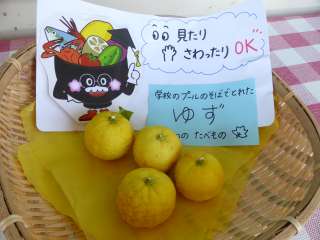 見たり
さわったり OK
学校のプールのそばでとれた
ゆず
の たべもの